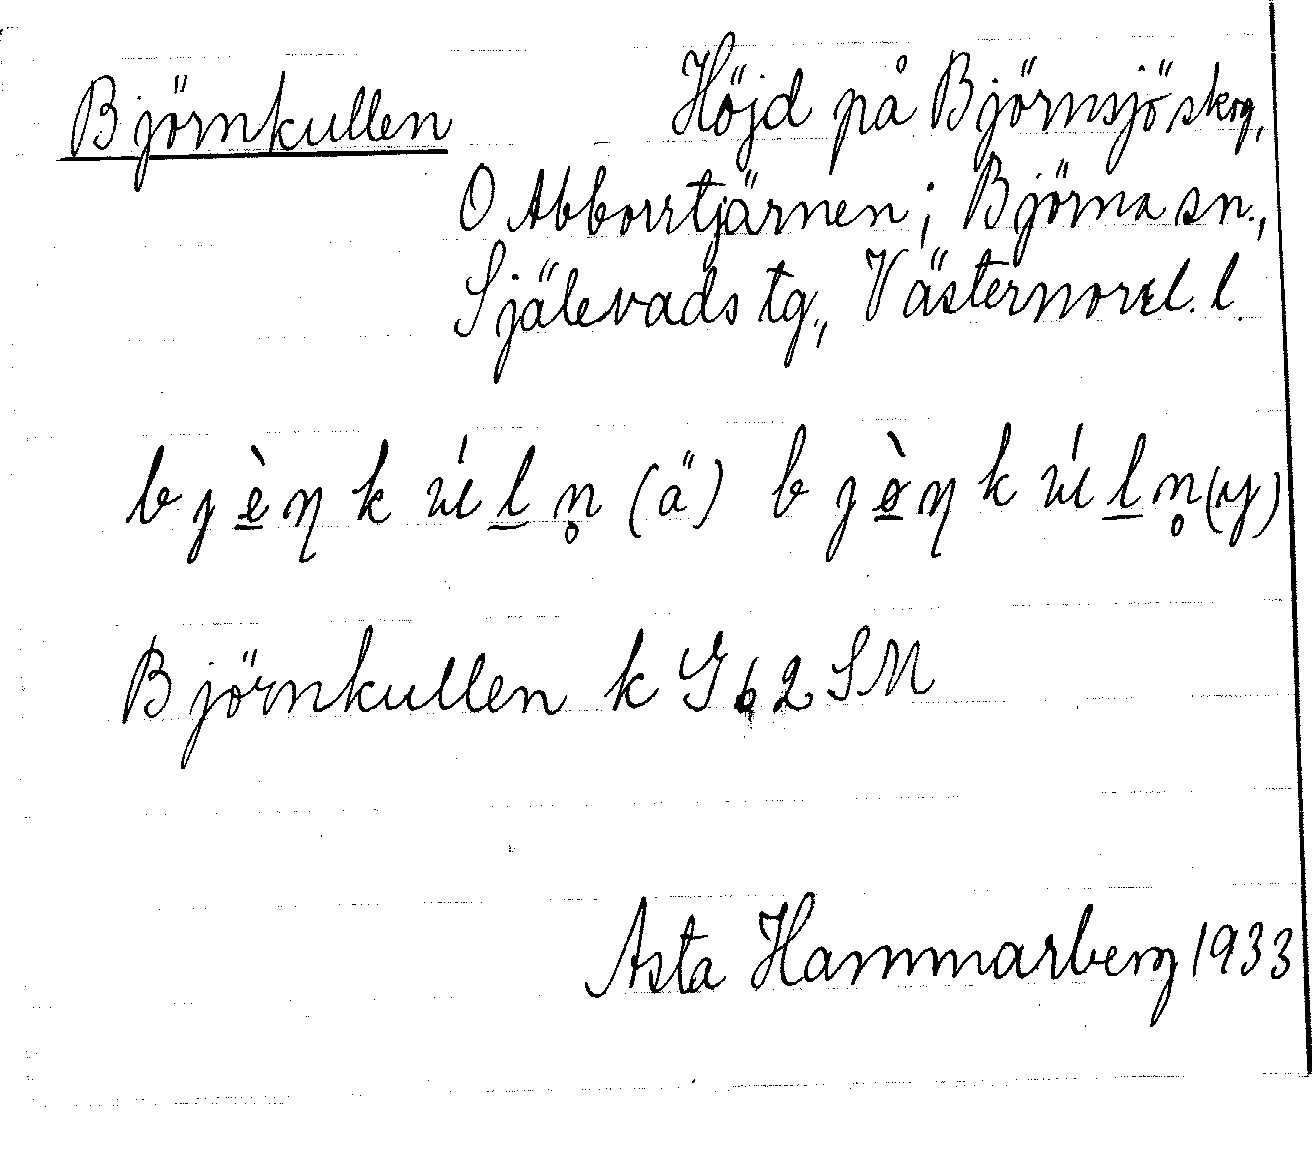 Björnkullen Höjd på Björnsjö skog,
O Abborrtjärnen; Björna sn.,
Själevads tg., Västernorrl. l.
b j è̱ ŋ k ú ḻ n̥ (ä) b j è̱ ŋ k ú ḻ n̥ (y)
Björnkullen k G 62 SM
Asta Hammarberg 1933